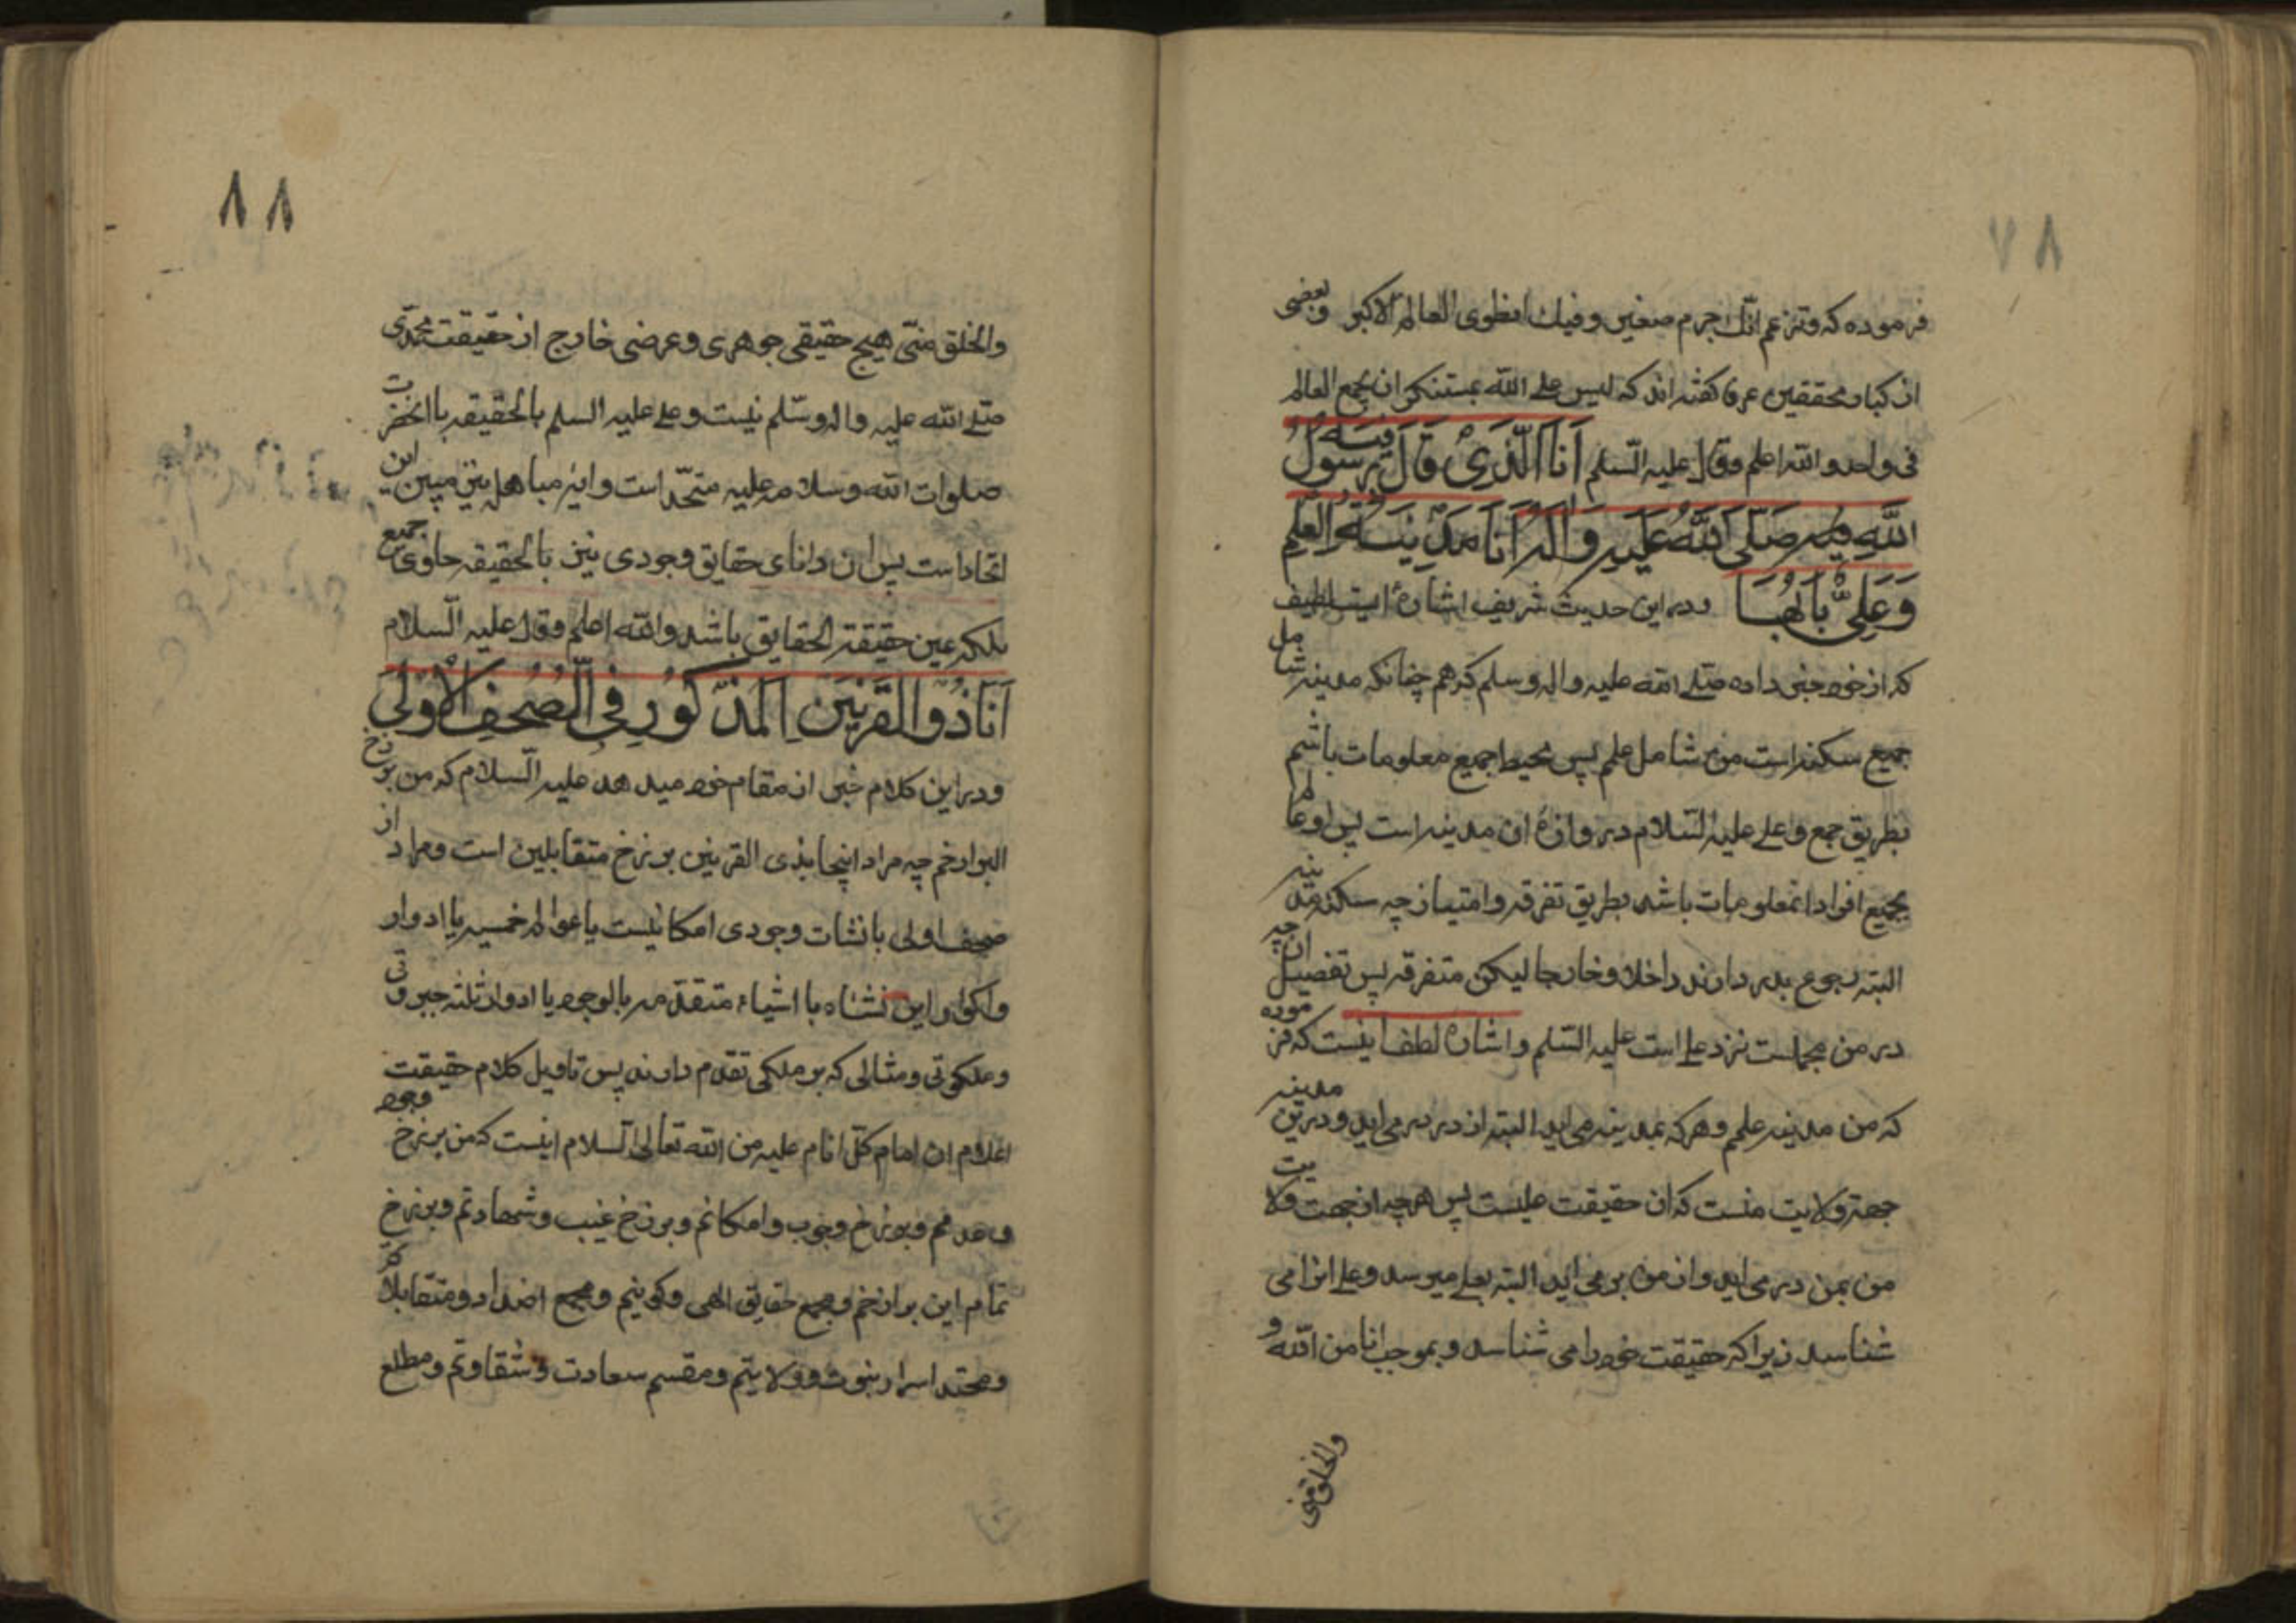 ٧٨
فرموده که وتزعم انّك جرم صغير وفيك انطوى العالم الاكبر وبعضى
از کبار محققین عرفا گفته اند که ليس على الله بمستنكر ان يجمع العالم
فى واحد والله اعلم وقال عليه السّلم اَنَا الَّذى قَالَ فيه رَسُولُ
اللّٰهِ فيه صَلَّى اللّٰهُ عَلَيهِ وَآلِه اَنَا مَدِينَةُ الْعِلْمِ
وَعَلِىٌّ بَابُهَا ودر این حدیث شریف اشارهٔ ایست لطیف
که از خود خبر داده صلى الله عليه واله وسلم که هم چنانکه مدینه شامل
جمیع سکنه است من شامل علم پس محیط جمیع معلومات باشم
بطریق جمع وعلى عليه السّلام دروازهٔ ان مدینه است پس او عالم
بجمیع افراد انمعلومات باشد بطریق تفرقه وامتیاز چه سکنه مدینه
البته رجوع بدر دارند داخلا وخارجا لیکن متفرقه پس تفصیل ان چه
در من مجملست نزد على است عليه السّلم واشارهٔ لطف اینست که فرموده
که من مدینه علمم وهر که بمدینه می اید البته از در در می اید ودر این مدینه
جهة ولایت منست که ان حقیقت علیست پس هر چه از جهت ولایت
من بمن در می اید واز من بر می اید البته بعلی میرسد وعلی انرا می
شناسد زیرا که حقیقت خود را می شناسد وبموجب انا من الله و
والخلق منى
٨٨
والخلق منّى هیچ حقیقی جوهری وعرضی خارج از حقیقت محمّدی
صلى الله عليه واله وسلّم نیست وعلى عليه السلم بالحقیقه با انحضرت
صلوات الله وسلامه عليه متحّد است وایه مباهله نیز مبین این
اتحاد است پس ان دانای حقایق وجودی نیز بالحقیقه حاوی جمیع
بلکه عین حقیقة الحقایق باشد والله اعلم وقال عليه السّلام
اَنَا ذُو الْقَرْنَيْنِ اَلْمَذْكُورِ فِى الصُّحُفِ الْاُوْلىٰ
ودر این کلام خبر از مقام خود میدهد علیه السّلام که من برزخ
البرازخم چه مراد اینجا بذی القرنین برزخ متقابلین است ومراد از
صحف اولی یا نشات وجودی امکانیست یا عوالم خمسه یا ادوار
واکوار این نشاه با اشیاء متقدمه بالوجود یا ادوار ثلثه جبروتی
وملکوتی ومثالی که بر ملکی تقدم دارند پس تاویل کلام حقیقت
اعلام ان امام کل انام عليه من الله تعالى السلام اینست که من برزخ وجود
وعدمم وبرزخ وجوب وامکانم وبرزخ غیب وشهادتم وبرزخ
تمام این برازخم وجمع حقایق الهی وکونیم ومجمع اضداد ومتقابلا
ومحتد اسرار نبوت وولایتم ومقسم سعادت وشقاوتم ومطلع